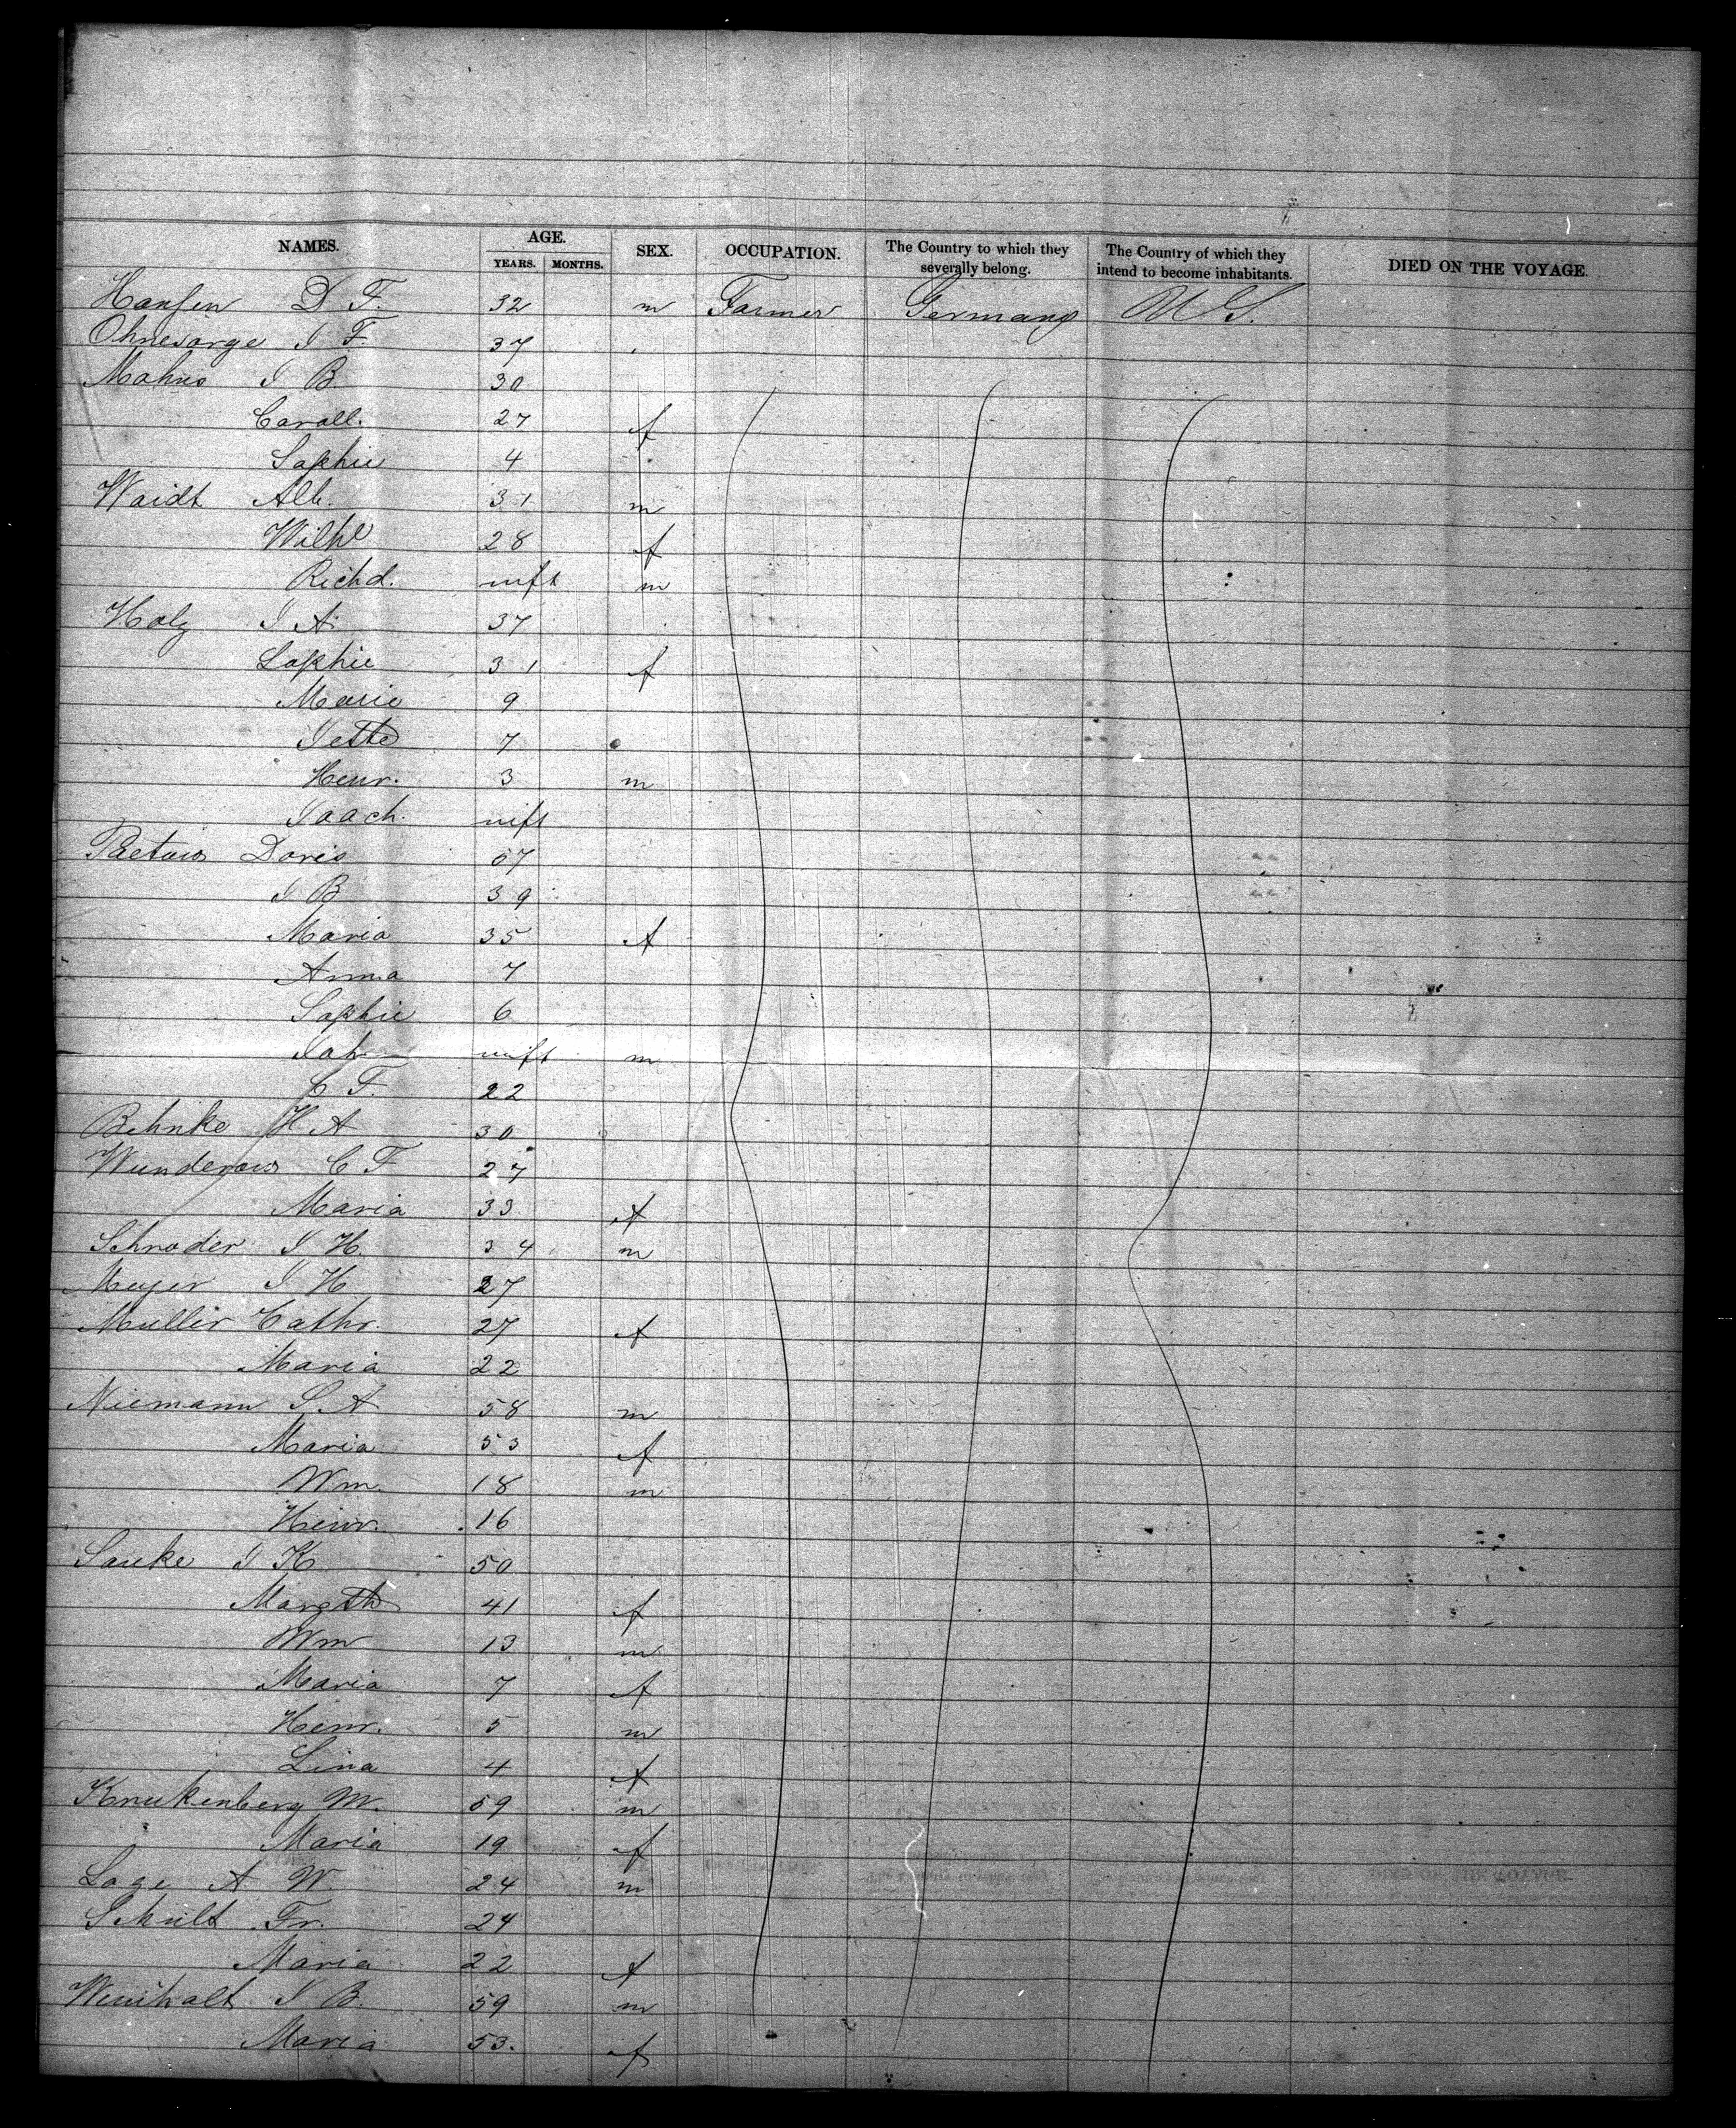 NAMES. AGE. SEX. OCCUPATION. The Country to which they severally belong. The Country of which they intend to become inhabitants. DIED ON THE VOYAGE.
YEARS. MONTHS.
Hansen D F. 32 m Farmer Germany U S.
Ohnesorge J F 37
Mahns J B 30
Caroll. 27 f
Sophie 4
Waidt Alb. 31 m
Wilhe 28 f
Richd. inft m
Holz J A. 37
Sophie 31 f
Marie 9
Jette 7
Henr. 3 m
Joach. inft
Paetow Doris 67
J B 39
Maria 35 f
Anna 7
Sophie 6
Joh inft m
C F. 22
Behnke H A 30
Wunderow C F 27
Maria 33 f
Schroder J H. 34 m
Meyer J H 27
Muller Cathr. 27 f
Maria 22
Niemann J. A 58 m
Maria 53 f
Wm. 18 m
Heinr. 16
Sauke J K 50
Margth 41 f
Wm 13 m
Maria 7 f
Heinr. 5 m
Lina 4 f
Krukenberg M. 59 m
Maria 19 f
Lage A W 24 m
Schult Fr. 24
Maria 22 f
J B. 59 m
Maria 53. f